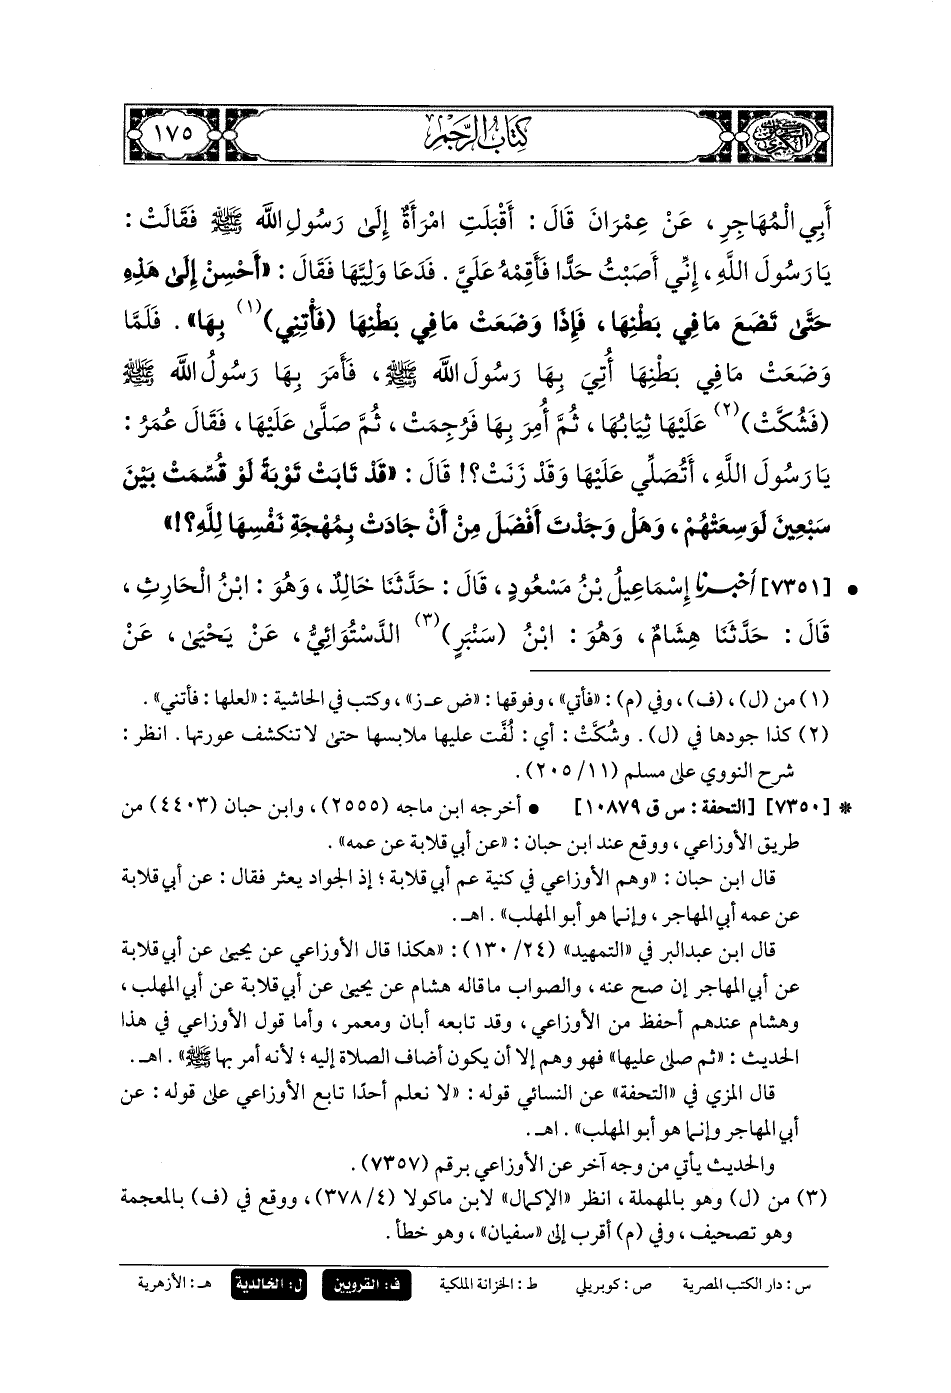 السنن الكبرى
كتاب الرجم
١٧٥
أَبِي الْمُهَاجِرِ، عَنْ عِمْرَانَ قَالَ: أَقْبَلَتِ امْرَأَةٌ إِلَىٰ رَسُولِ اللَّه ﷺ فَقَالَتْ:
يَا رَسُولَ اللَّهِ، إِنِّي أَصَبْتُ حَدًّا فَأَقِمْهُ عَلَيَّ. فَدَعَا وَلِيَّهَا فَقَالَ: «أَحْسِنْ إِلَىٰ هَذِهِ
حَتَّىٰ تَضَعَ مَا فِي بَطْنِهَا، فَإِذَا وَضَعَتْ مَا فِي بَطْنِهَا (فَأْتِنِي)(١) بِهَا». فَلَمَّا
وَضَعَتْ مَا فِي بَطْنِهَا أُتِيَ بِهَا رَسُولَ اللَّه ﷺ، فَأَمَرَ بِهَا رَسُولُ اللَّه ﷺ
(فَشُكَّتْ)(٢) عَلَيْهَا ثِيَابُهَا، ثُمَّ أُمِرَ بِهَا فَرُجِمَتْ، ثُمَّ صَلَّىٰ عَلَيْهَا، فَقَالَ عُمَرُ:
يَا رَسُولَ اللَّهِ، أَتُصَلِّي عَلَيْهَا وَقَدْ زَنَتْ؟! قَالَ: «قَدْ تَابَتْ تَوْبَةً لَوْ قُسِّمَتْ بَيْنَ
سَبْعِينَ لَوَسِعَتْهُمْ، وَهَلْ وَجَدْتَ أَفْضَلَ مِنْ أَنْ جَادَتْ بِمُهْجَةِ نَفْسِهَا لِلَّهِ؟!»
• [٧٣٥١] أخبرنا إِسْمَاعِيلُ بْنُ مَسْعُودٍ، قَالَ: حَدَّثَنَا خَالِدٌ، وَهُوَ: ابْنُ الْحَارِثِ،
قَالَ: حَدَّثَنَا هِشَامٌ، وَهُوَ: ابْنُ (سَنْبَرٍ)(٣) الدَّسْتُوَائِيُّ، عَنْ يَحْيَىٰ، عَنْ
(١) من (ل)، (ف)، وفي (م): «فأتي»، وفوقها: «ض عـ ز»، وكتب في الحاشية: «لعلها: فأتني».
(٢) كذا جودها في (ل). وشُكَّتْ: أي: لُفَّت عليها ملابسها حتى لا تنكشف عورتها. انظر:
شرح النووي على مسلم (١١/ ٢٠٥).
* [٧٣٥٠] [التحفة: س ق ١٠٨٧٩] • أخرجه ابن ماجه (٢٥٥٥)، وابن حبان (٤٤٠٣) من
طريق الأوزاعي، ووقع عند ابن حبان: «عن أبي قلابة عن عمه».
قال ابن حبان: «وهم الأوزاعي في كنية عم أبي قلابة؛ إذ الجواد يعثر فقال: عن أبي قلابة
عن عمه أبي المهاجر، وإنما هو أبو المهلب». اهـ.
قال ابن عبدالبر في «التمهيد» (٢٤/ ١٣٠): «هكذا قال الأوزاعي عن يحيىٰ عن أبي قلابة
عن أبي المهاجر إن صح عنه، والصواب ما قاله هشام عن يحيىٰ عن أبي قلابة عن أبي المهلب،
وهشام عندهم أحفظ من الأوزاعي، وقد تابعه أبان ومعمر، وأما قول الأوزاعي في هذا
الحديث: «ثم صلى عليها» فهو وهم إلا أن يكون أضاف الصلاة إليه؛ لأنه أمر بها ﷺ». اهـ.
قال المزي في «التحفة» عن النسائي قوله: «لا نعلم أحدًا تابع الأوزاعي على قوله: عن
أبي المهاجر وإنما هو أبو المهلب». اهـ.
والحديث يأتي من وجه آخر عن الأوزاعي برقم (٧٣٥٧).
(٣) من (ل) وهو بالمهملة، انظر «الإكمال» لابن ماكولا (٤/ ٣٧٨)، ووقع في (ف) بالمعجمة
وهو تصحيف، وفي (م) أقرب إلى «سفيان»، وهو خطأ.
س: دار الكتب المصرية ص: كوبريلي ط: الخزانة الملكية ف: القرويين ل: الخالدية هـ: الأزهرية